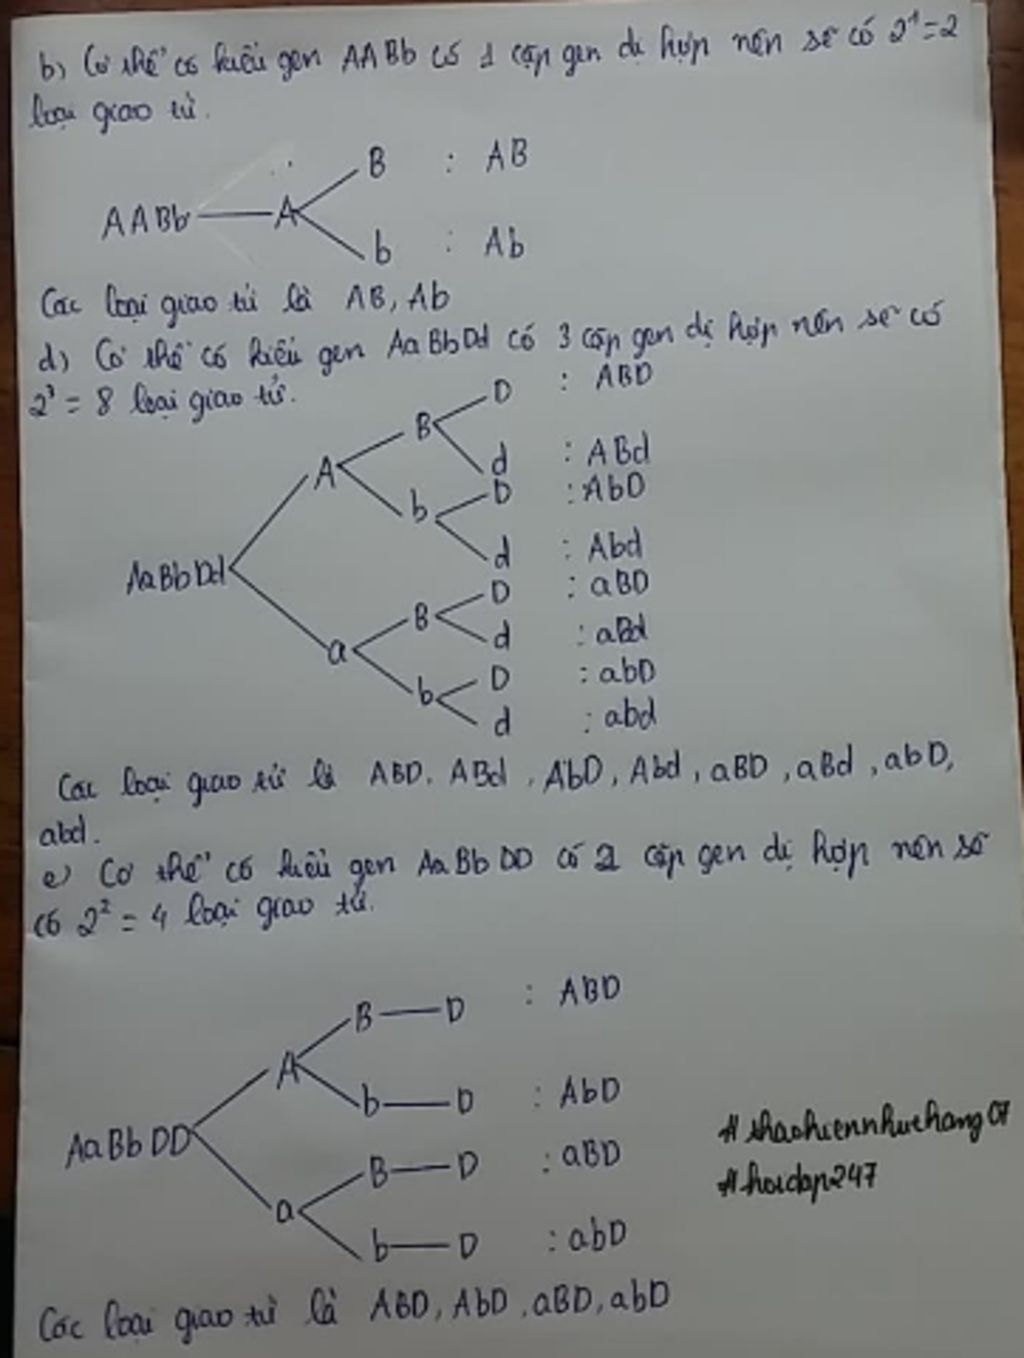 b) Cơ thể có kiểu gen AABb có 1 cặp gen dị hợp nên sẽ có 2¹=2
loại giao tử.
B : AB
AABb A
b : Ab
Các loại giao tử là AB, Ab
d) Cơ thể có kiểu gen AaBbDd có 3 cặp gen dị hợp nên sẽ có
2³ = 8 loại giao tử.
D : ABD
B
d : ABd
A
D : AbD
b
d : Abd
AaBbDd
D : aBD
B
d : aBd
a
D : abD
b
d : abd
Các loại giao tử là ABD, ABd, AbD, Abd, aBD, aBd, abD,
abd.
e) Cơ thể có kiểu gen AaBbDD có 2 cặp gen dị hợp nên sẽ
có 2² = 4 loại giao tử.
B D : ABD
A
b D : AbD
AaBbDD
B D : aBD
a
b D : abD
#thaohiennhuehang07
#hoidap247
Các loại giao tử là ABD, AbD, aBD, abD